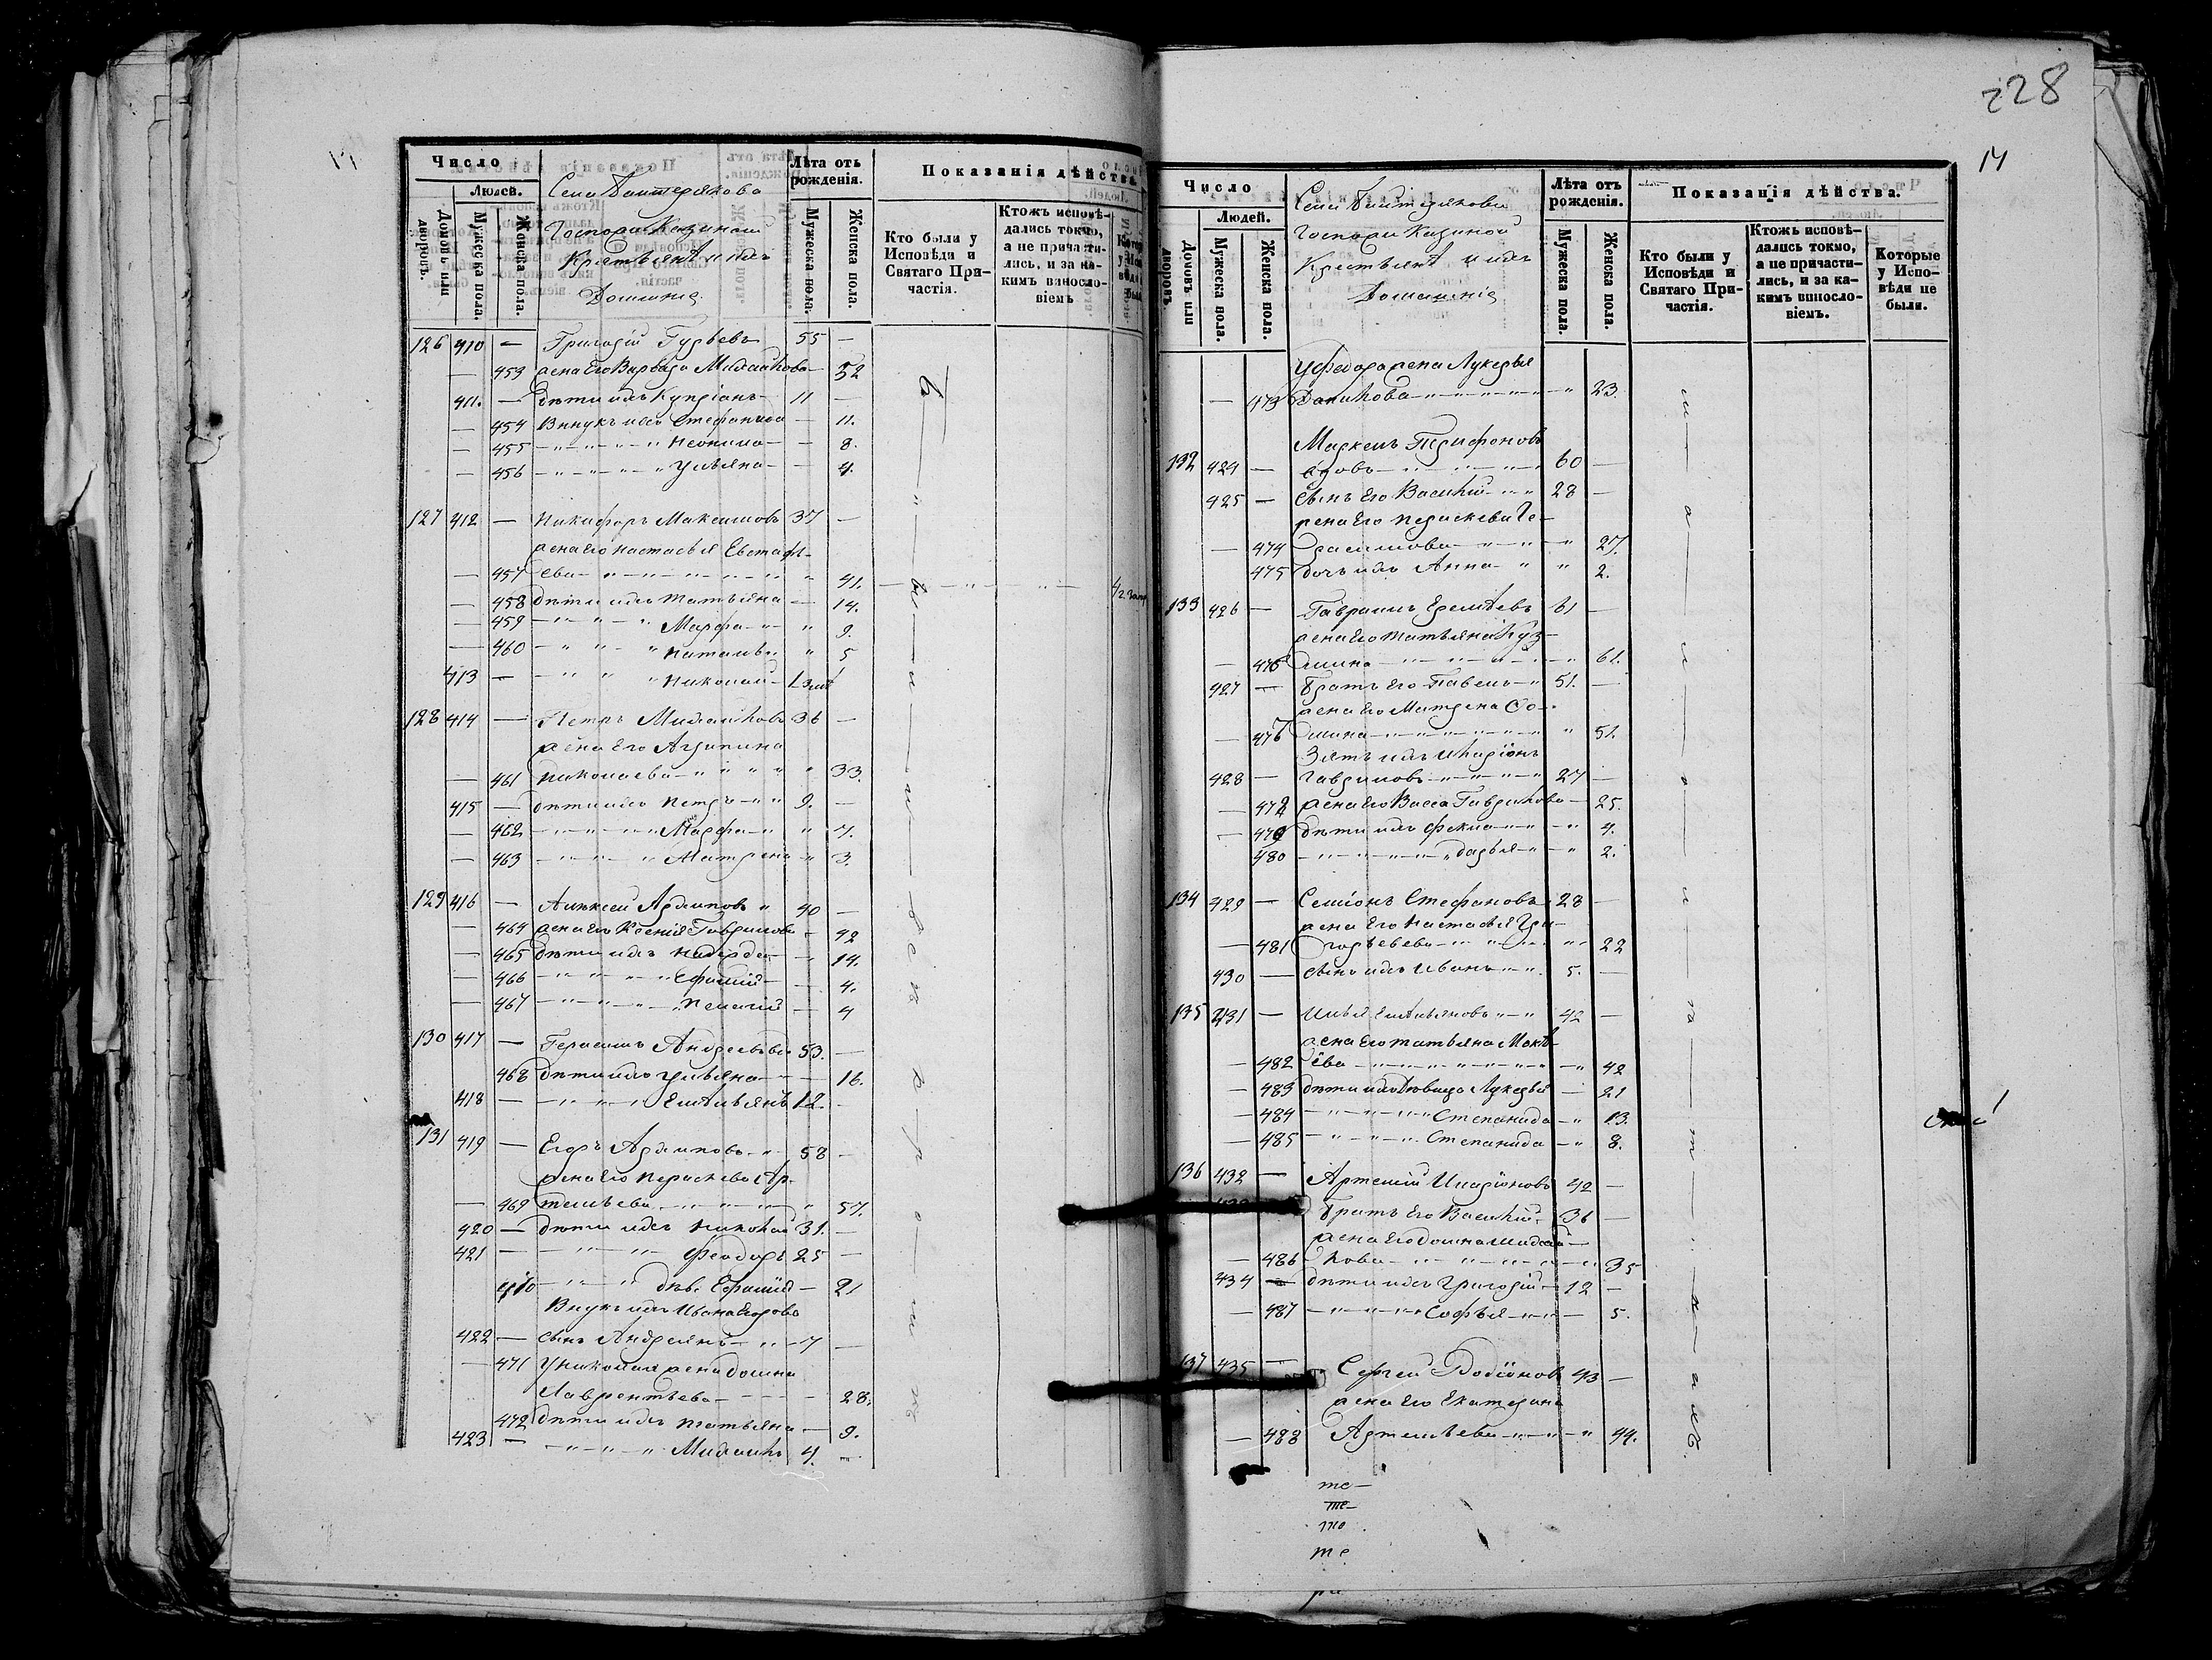 Число
Людей.
Домовъ или дворовъ.
Мужеска пола.
Женска пола.
Села
Крестьяне и ихъ
Домашнiе
Лѣта отъ рожденія.
Мужеска пола.
Женска пола.
Показанія дѣйства.
Кто были у Исповѣди и Святаго При-частія.
Ктожъ исповѣ-дались токмо, а не причасти-лись, и за ка-кимъ винosло-віемъ
126 410 — Григорій Гурьевъ 55 —
— 453 жена его Варвара Михайлова — 52
411. — дѣти ихъ Купріянъ 11 —
— 454 Внуки ихъ Стефанида — 11.
— 455 — " — " Неонила — 8.
— 456 — " — " Ульяна — 4.
127 412 — Никифоръ Максимовъ 37 —
жена его Настасья Евстафі-
— 457 ева — " — " 41.
— 458 дѣти ихъ Татьяна — 14.
— 459 — " — " Марфа — " 9.
— 460 — " — " Наталья " 5
413 — — " " Николай
128 414 — Петръ Михайловъ 36 —
жена его Агрипина
— 461 Николаева — " " 33.
415 — дѣти ихъ Петръ — " 9. —
— 462 — " — " Марфа — " 7.
— 463 — " — " Матрена — " 3.
129 416 — Алексей Архиповъ " 40 —
— 464 жена его Ксенія Гаврилова — 42
— 465 дѣти ихъ Надежда — 14.
— 466 — " — " Ефимія — 4.
— 467 — " — " Пелагія — 4
130 417 — Герасимъ Андреевъ 53. —
468 дѣти ихъ Ульяна — — 16.
418 — — " — " Емельянъ 12. —
131 419 — Егоръ Архиповъ — " 58 —
жена его Парасковья Ар-
— 469 темьева — " — " 57.
420 — дѣти ихъ Николай 31. —
421 — — " — " Феодоръ 25 —
470 — " — " дѣв. Ефимія — 21
Внукъ ихъ Ивана Егорова
422 — сынъ Андреянъ — " — 7 —
— 471 У Николая жена Домна
Лаврентьева — — — 28.
472 дѣти ихъ Татьяна — 9.
423 — — " — " Михаилъ 4. —
228
14
Число
Людей.
Домовъ или дворовъ.
Мужеска пола.
Женска пола.
Села
Крестьяне и ихъ
Домашнiе
Лѣта отъ рожденія.
Мужеска пола.
Женска пола.
Показанія дѣйства.
Кто были у Исповѣди и Святаго При-частія.
Ктожъ исповѣ-дались токмо, а не причасти-лись, и за ка-кимъ винosло-віемъ.
Которые у Испо-вѣди не были.
У Федора жена Лукерья
— 473 Данилова — " — " 23.
Маркелъ Трифоновъ
132 424 — — " — " 60 —
425 — сынъ его Василій — " 28 —
жена его Парасковья Ге-
— 474 расимова — " — " 27.
475 дочь ихъ Анна — " " 2.
133 426 — Гавриилъ Еремѣевъ 61 —
жена его Татьяна Куз-
— 476 мина — " — " 61.
427 — братъ его Павелъ — " 51. —
жена его Матрена Со-
— 476 мина — " — " 51.
Зять ихъ Иларіонъ
428 — Гавриловъ — " — " 27 —
— 478 жена его Васса Гаврилова — 25.
— 479 дѣти ихъ Фекла — " — " 4.
480 — " — " Дарья — " — " 2.
134 429 — Семіонъ Стефановъ 28 —
жена его Настасья Гри-
— 481 горьевева — " — " 22
430 — сынъ ихъ Иванъ — " 5. —
135 431 — Илья Емельяновъ — " 42 —
жена его Татьяна Макѣ-
— 482 ева — " — " 42
— 483 дѣти ихъ дѣвица Лукерья — 21
— 484 — " — " Степанида — " 13.
— 485 — " — " Степанида — " 8.
136 432 — Артемій Иларіоновъ 42 —
братъ его Василій 36 —
жена его Домна Михай-
— 486 лова — " — " 35
434 — дѣти ихъ Григорій — 12 —
— 487 — " — " Софья — " — 5.
137 435 — Сергей Родіоновъ 43 —
жена его Екатерина
— 488 Артемьева — " — " 44.
те—
те—
то
те